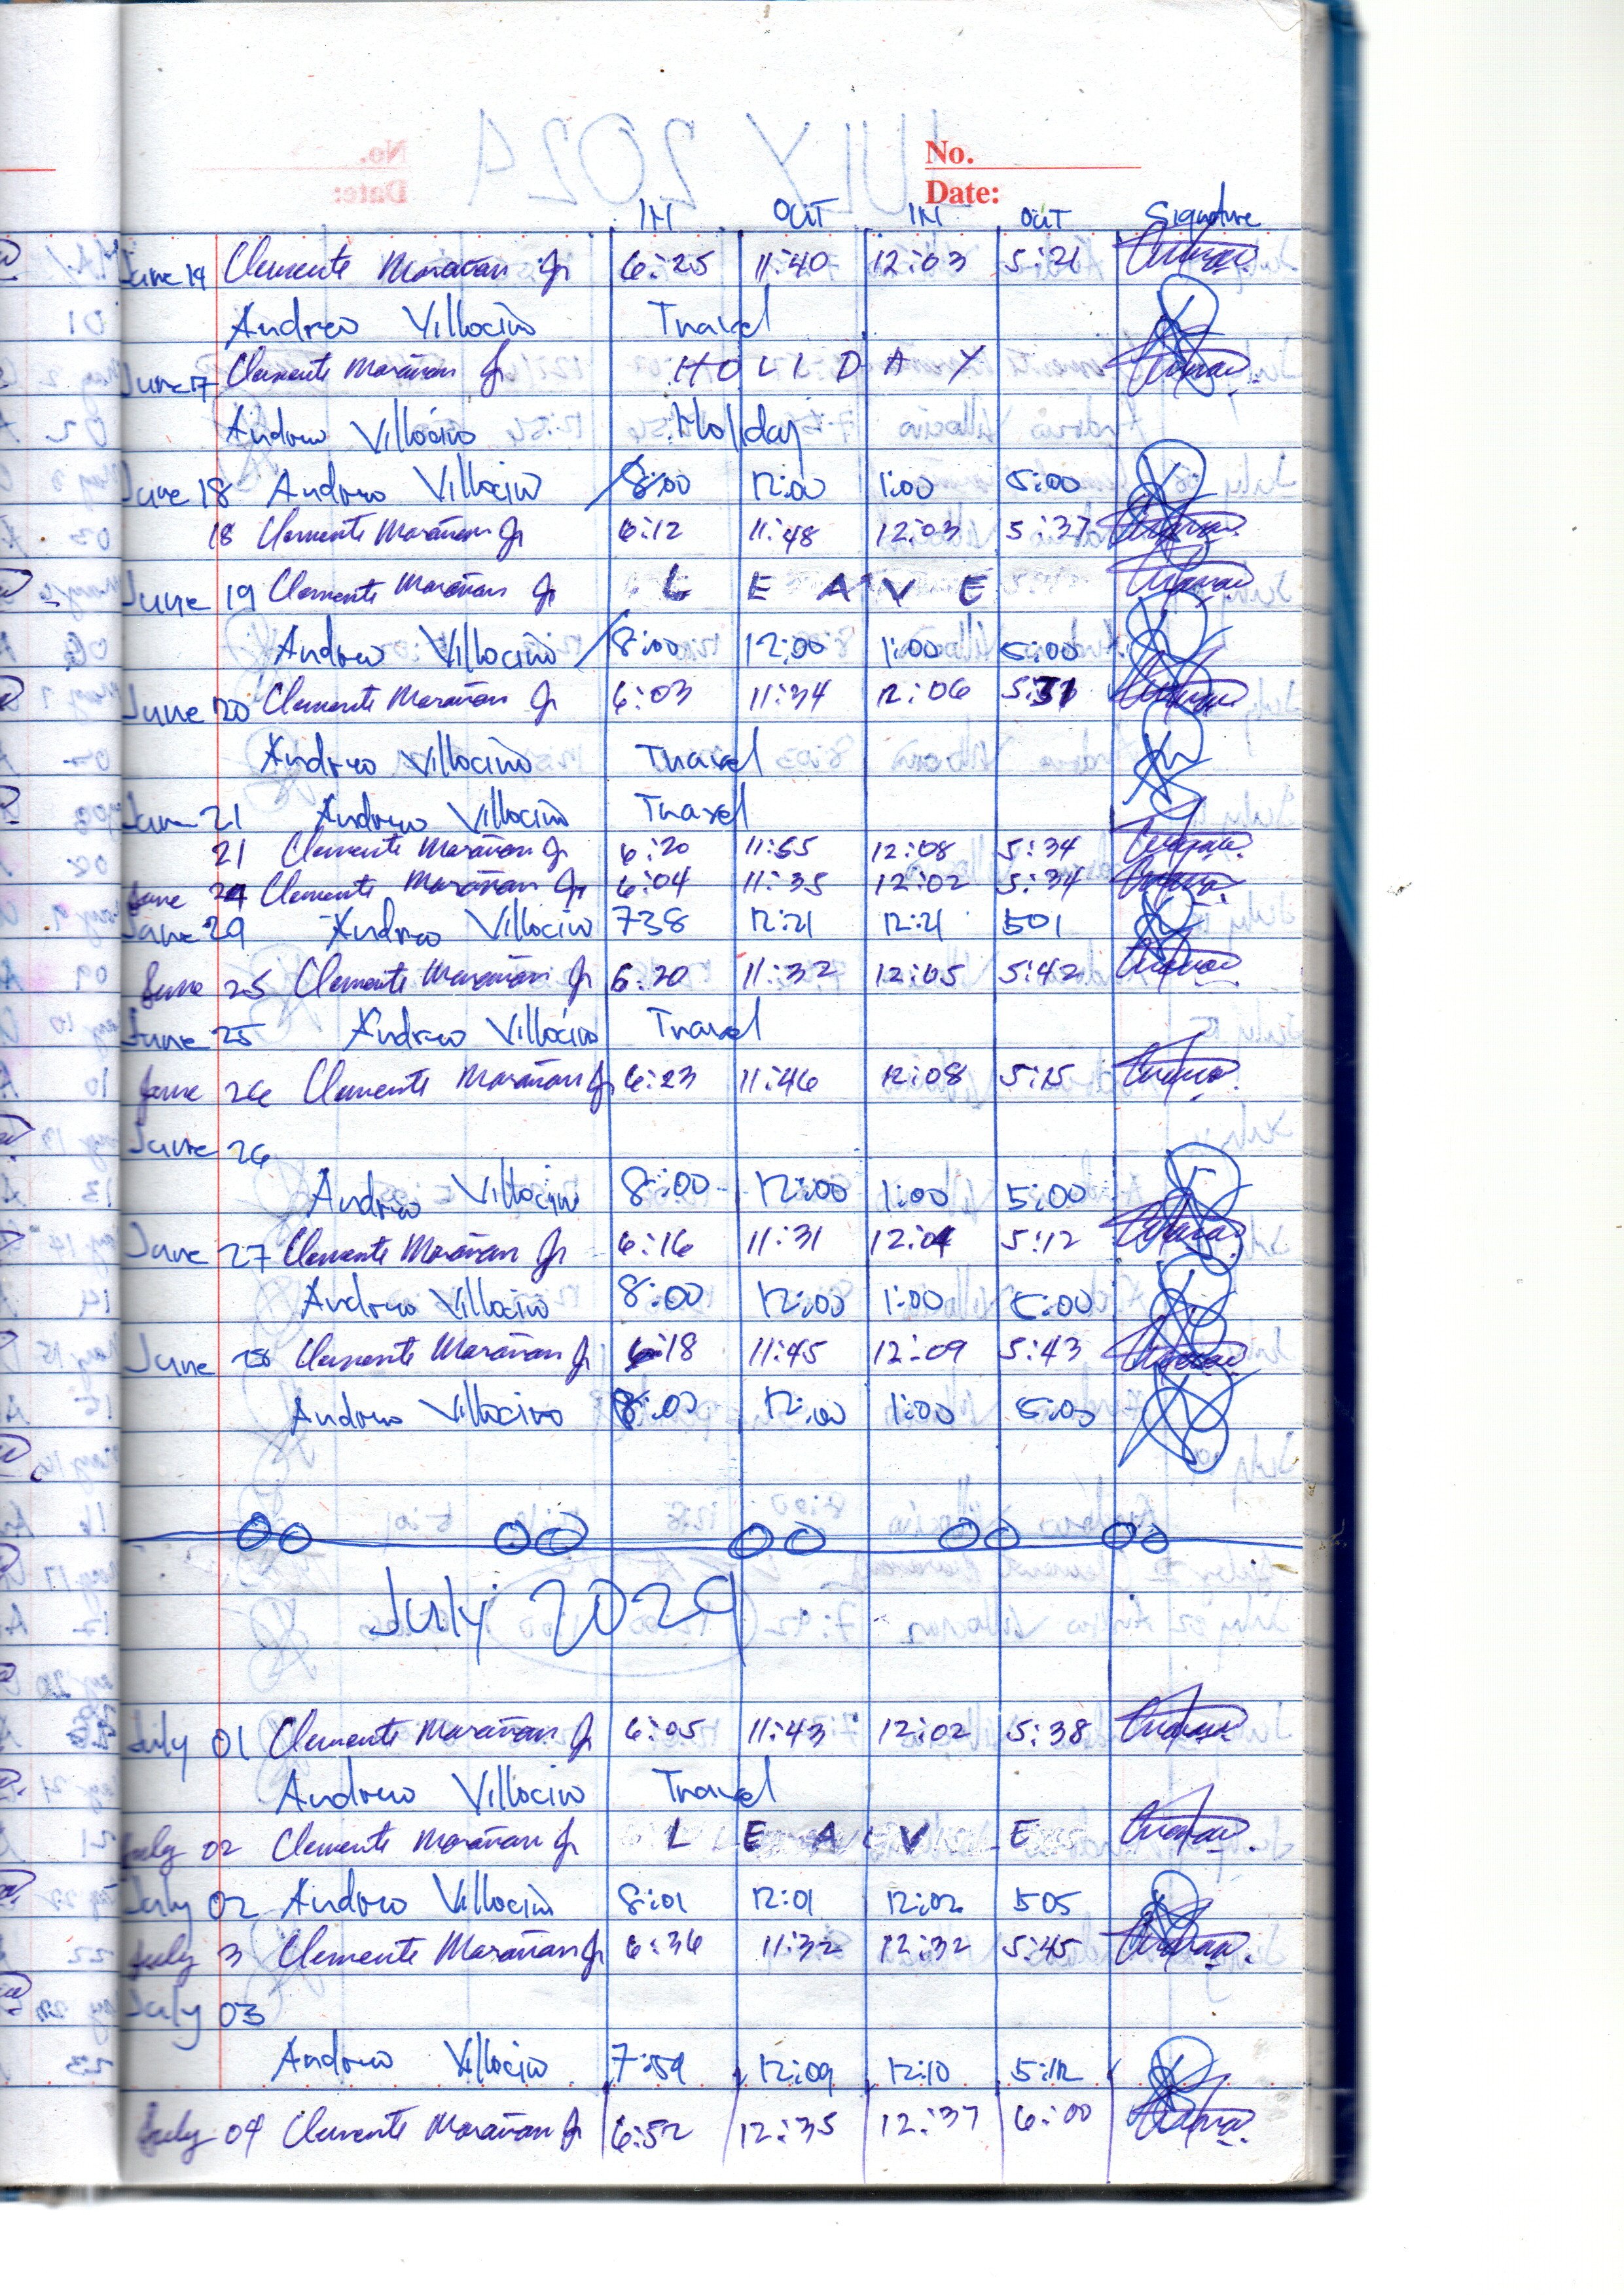 No.
Date:
IN OUT IN OUT Signature
June 14 Clemente Marañan Jr 6:25 11:40 12:03 5:21
Andrew Villocino Travel
June 17 Clemente Marañan Jr HOLIDAY
Andrew Villocino Holiday
June 18 Andrew Villocino 8:00 12:00 1:00 5:00
18 Clemente Marañan Jr 6:12 11:48 12:03 5:37
June 19 Clemente Marañan Jr LEAVE
Andrew Villocino 8:00 12:00 1:00 5:00
June 20 Clemente Marañan Jr 6:03 11:34 12:06 5:31
Andrew Villocino Travel
June 21 Andrew Villocino Travel
21 Clemente Marañan Jr 6:20 11:55 12:08 5:34
June 24 Clemente Marañan Jr 6:04 11:35 12:02 5:34
June 24 Andrew Villocino 738 12:21 12:21 501
June 25 Clemente Marañan Jr 6:20 11:32 12:05 5:42
June 25 Andrew Villocino Travel
June 26 Clemente Marañan Jr 6:23 11:46 12:08 5:15
June 26
Andrew Villocino 8:00 12:00 1:00 5:00
June 27 Clemente Marañan Jr 6:16 11:31 12:04 5:12
Andrew Villocino 8:00 12:00 1:00 5:00
June 28 Clemente Marañan Jr 6:18 11:45 12:09 5:43
Andrew Villocino 8:00 12:00 1:00 5:00
July 2024
July 01 Clemente Marañan Jr 6:05 11:43 12:02 5:38
Andrew Villocino Travel
July 02 Clemente Marañan Jr LEAVE
July 02 Andrew Villocino 8:01 12:01 12:02 505
July 3 Clemente Marañan Jr 6:36 11:32 12:32 5:45
July 03
Andrew Villocino 7:59 12:09 12:10 5:12
July 04 Clemente Marañan Jr 6:52 12:35 12:37 6:00